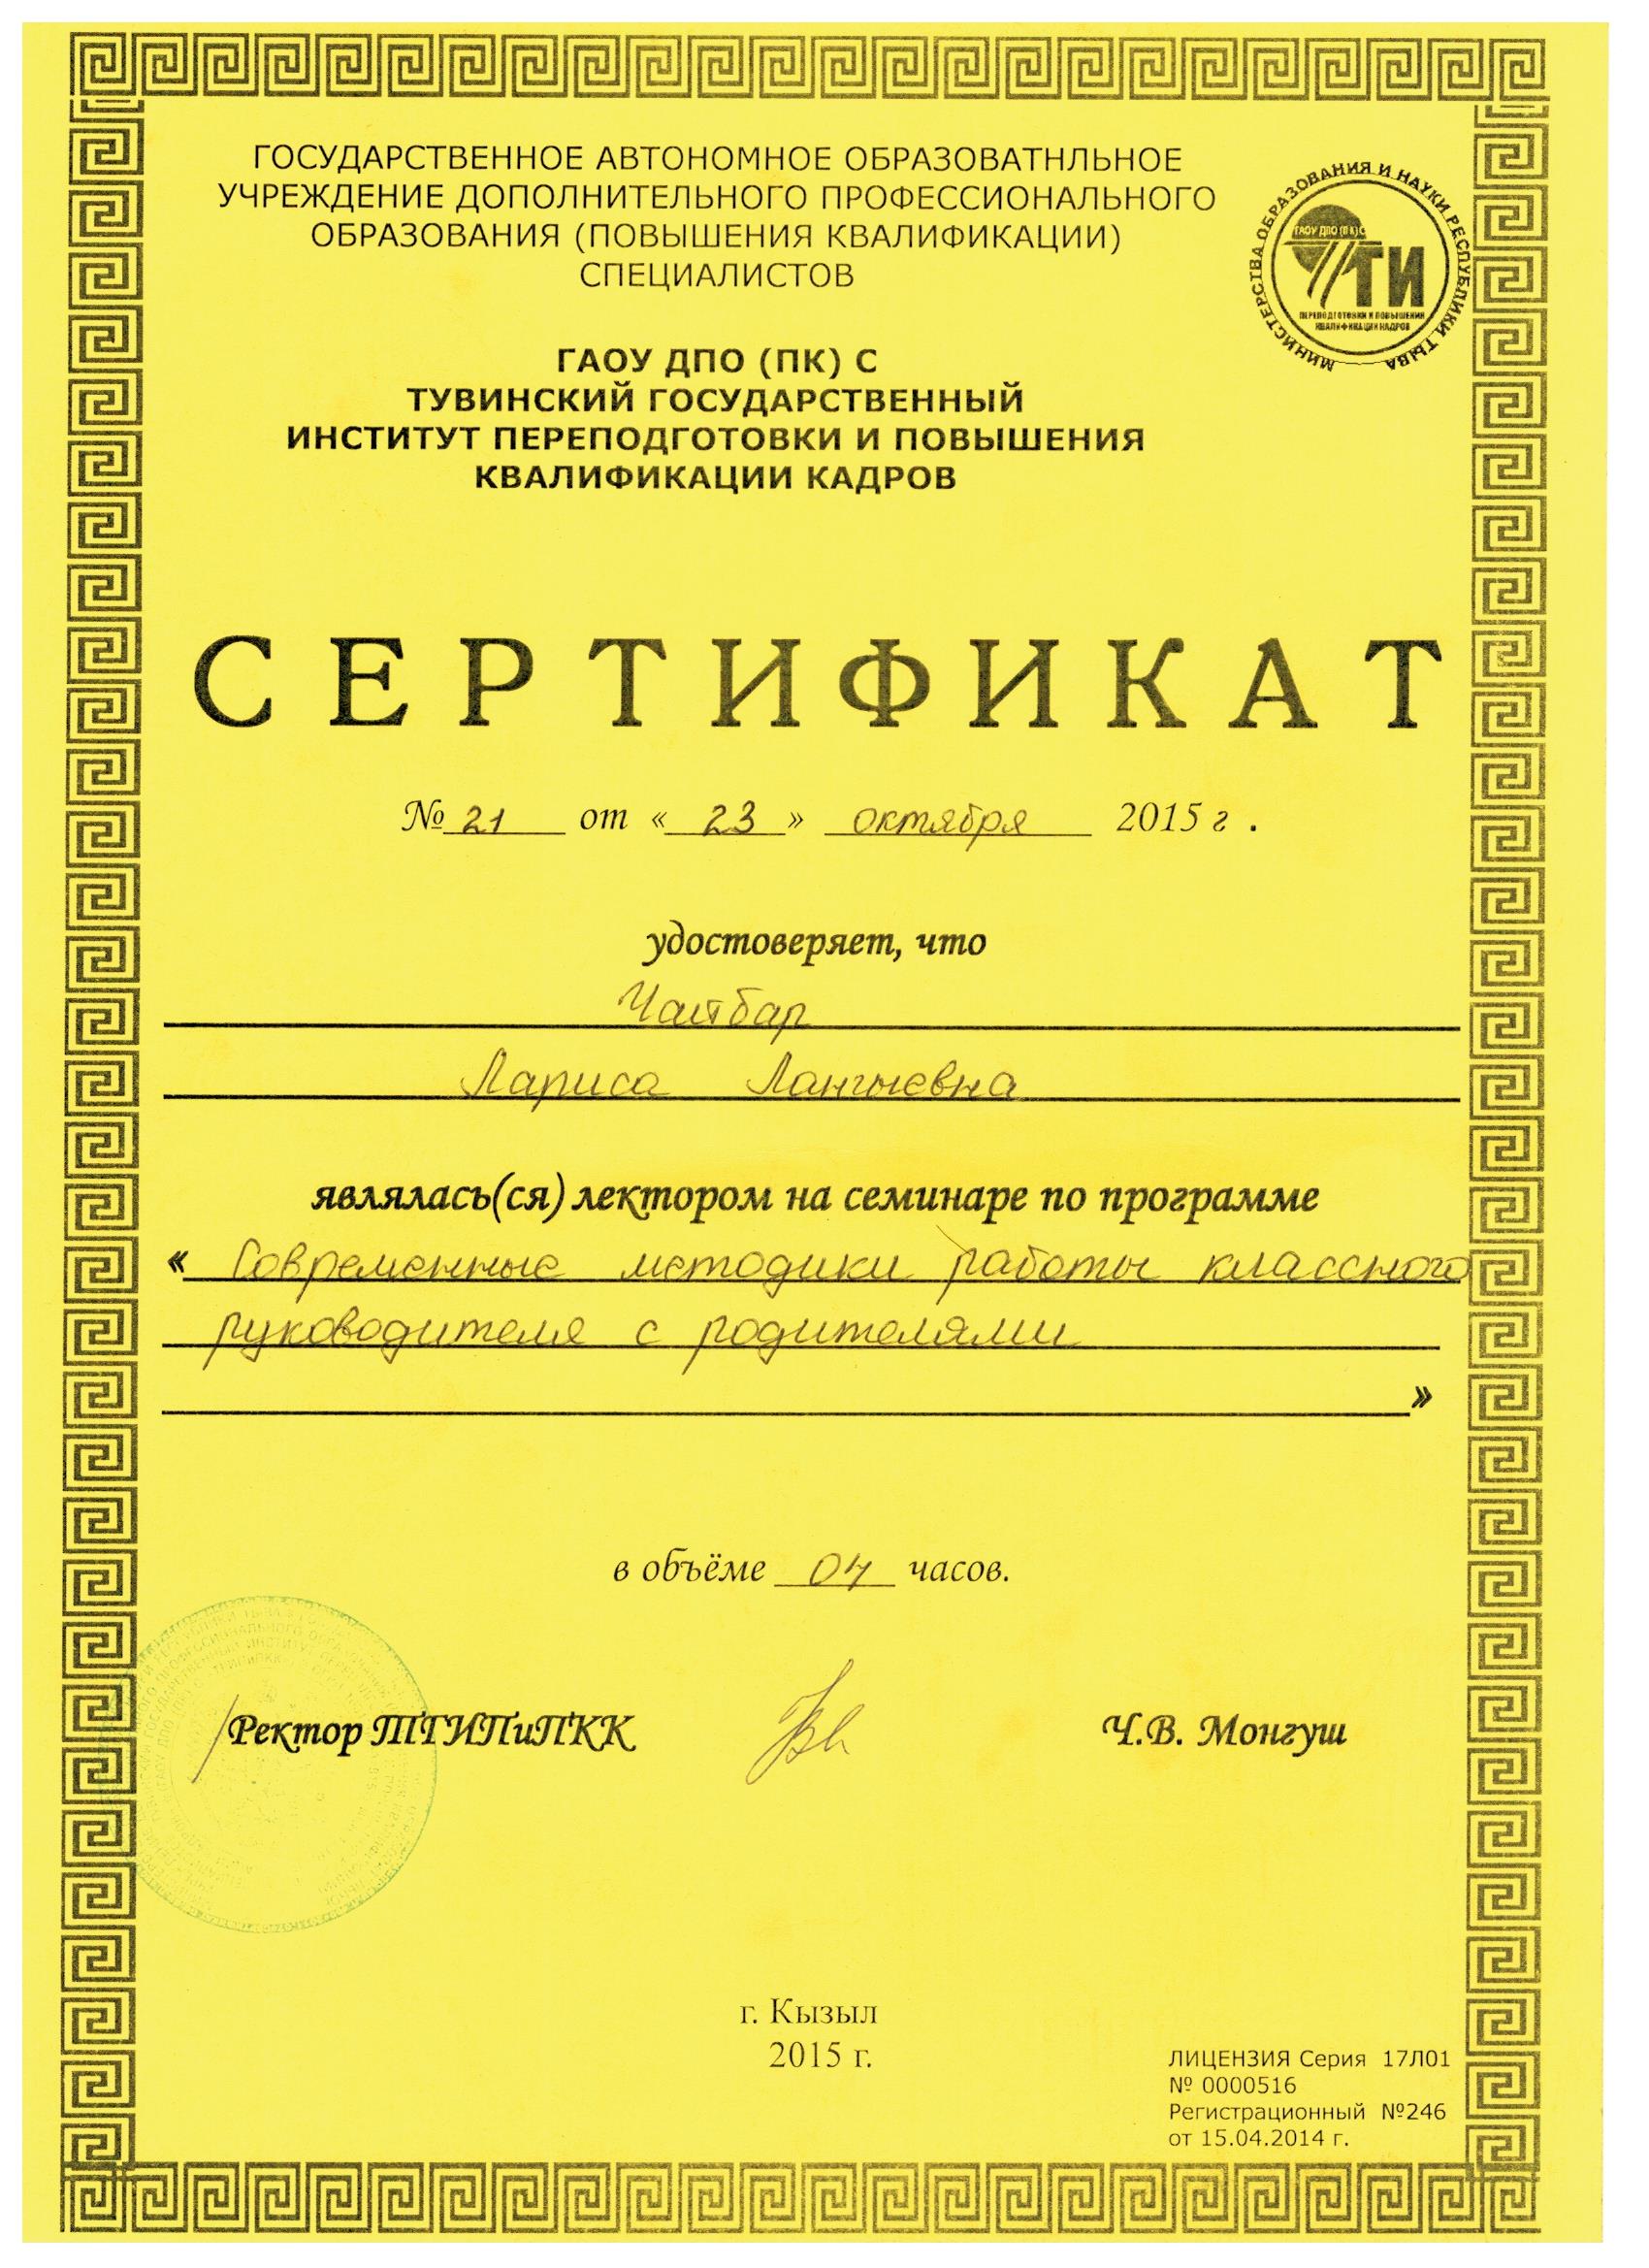 ГОСУДАРСТВЕННОЕ АВТОНОМНОЕ ОБРАЗОВАТНЛЬНОЕ
УЧРЕЖДЕНИЕ ДОПОЛНИТЕЛЬНОГО ПРОФЕССИОНАЛЬНОГО
ОБРАЗОВАНИЯ (ПОВЫШЕНИЯ КВАЛИФИКАЦИИ)
СПЕЦИАЛИСТОВ
МИНИСТЕРСТВА ОБРАЗОВАНИЯ И НАУКИ РЕСПУБЛИКИ ТЫВА
ГАОУ ДПО (ПК) С
ТИ
ПЕРЕПОДГОТОВКИ И ПОВЫШЕНИЯ
КВАЛИФИКАЦИИ КАДРОВ
ГАОУ ДПО (ПК) С
ТУВИНСКИЙ ГОСУДАРСТВЕННЫЙ
ИНСТИТУТ ПЕРЕПОДГОТОВКИ И ПОВЫШЕНИЯ
КВАЛИФИКАЦИИ КАДРОВ
СЕРТИФИКАТ
№ 21 от « 23 » октября 2015 г .
удостоверяет, что
Лариса
являлась(ся) лектором на семинаре по программе
« Современные методики работы классного
руководителя с родителями
»
в объёме 04 часов.
Ректор ТГИПиПКК Ч.В. Монгуш
г. Кызыл
2015 г.
ЛИЦЕНЗИЯ Серия 17Л01
№ 0000516
Регистрационный №246
от 15.04.2014 г.